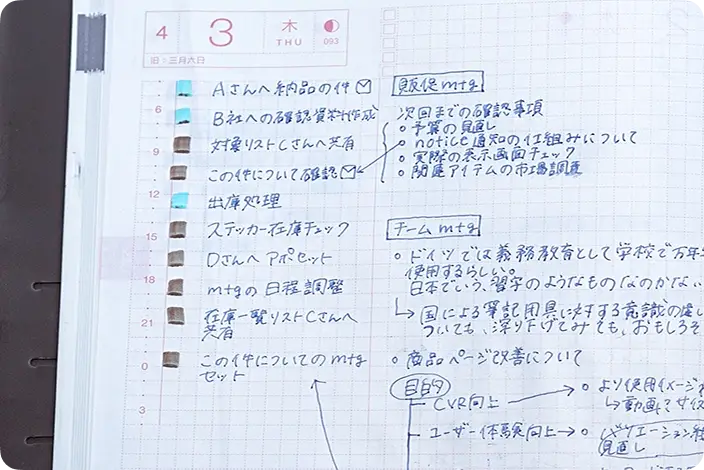 4
3
木
THU
093
旧:三月六日
6
9
12
15
18
21
0
3
Aさんへ納品の件
B社への確認資料作成
対象リストCさんへ共有
この件について確認
出庫処理
ステッカー在庫チェック
Dさんへアポセット
mtgの日程調整
在庫一覧リストCさんへ
共有
この件についてのmtg
セット
販促mtg
次回までの確認事項
予算の見直し
notice通知の仕組みについて
実際の表示画面チェック
関連アイテムの市場調査
チームmtg
ドイツでは義務教育として学校で万年
使用するらしい。
日本でいう、習字のようなものなのかな
国による筆記用具に対する意識の違
ついても、深り下げてみても、おもしろそ
商品ページ改善について
目的
CVR向上
より使用イメージ
動画でサイズ
ユーザー体験向上
バリエーション
見直し